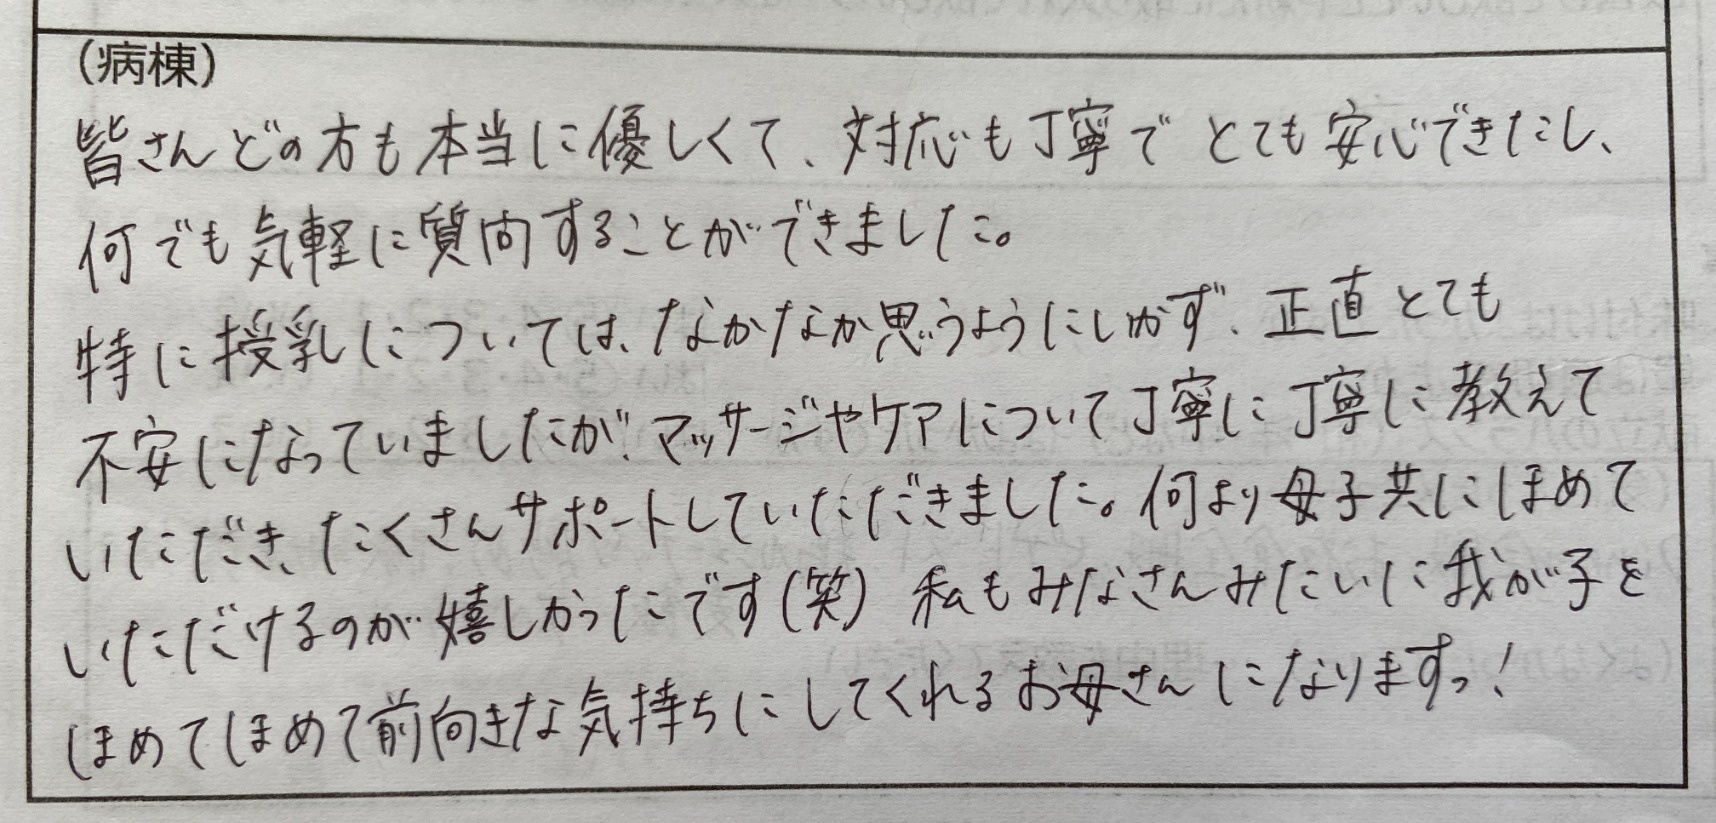 （病棟）
皆さんどの方も本当に優しくて、対応も丁寧でとても安心できたし、
何でも気軽に質問することができました。
特に授乳については、なかなか思うようにいかず、正直とても
不安になっていましたが、マッサージやケアについて丁寧に丁寧に教えて
いただき、たくさんサポートしていただきました。何より母子共にほめて
いただけるのが嬉しかったです(笑) 私もみなさんみたいに我が子を
ほめてほめて前向きな気持ちにしてくれるお母さんになりますっ！